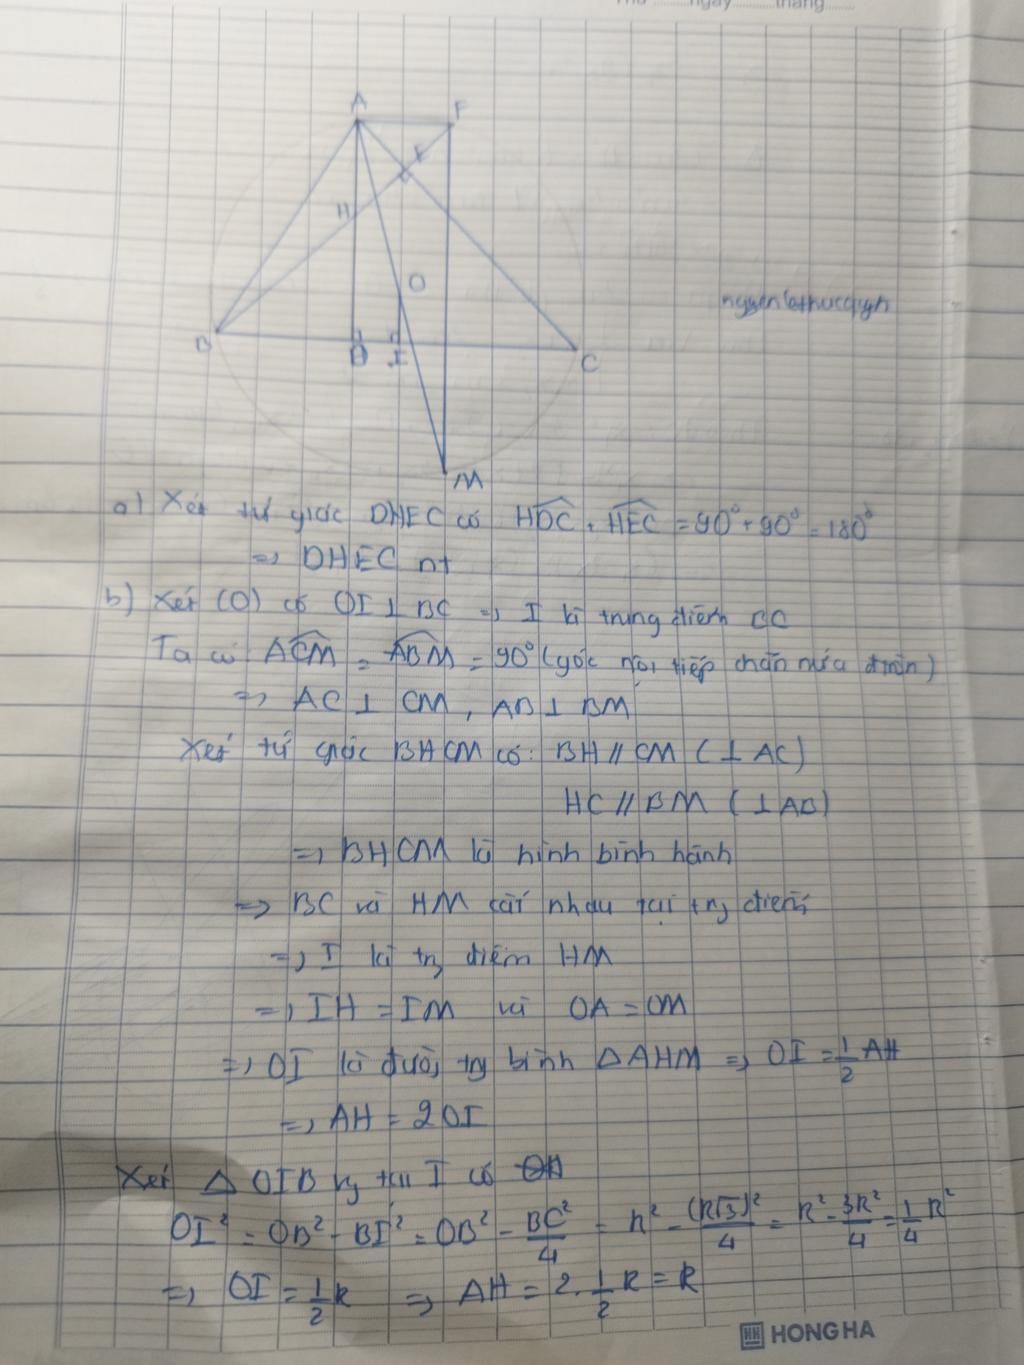 Thứ ngày tháng
A F
E
H
O
B D I C
M
a) Xét tứ giác DHEC có HDC + HEC = 90° + 90° = 180°
=> DHEC nt
b) Xét (O) có OI ⊥ BC => I là trung điểm CC
Ta có ACM = ABM = 90° (góc nội tiếp chắn nửa đtròn)
=> AC ⊥ CM, AB ⊥ BM
Xét tứ giác BHCM có: BH // CM (⊥ AC)
HC // BM (⊥ AB)
=> BHCM là hình bình hành
=> BC và HM cắt nhau tại trg điểm
=> I là trg điểm HM
=> IH = IM và OA = OM
=> OI là đường trg bình ΔAHM => OI = 1/2 AH
=> AH = 2OI
Xét Δ OIB vg tại I có
OI² = OB² - BI² = OB² - BC²/4 = R² - (R√3)²/4 = R² - 3R²/4 = 1/4 R²
=> OI = 1/2 R => AH = 2. 1/2 R = R
HH HONG HA